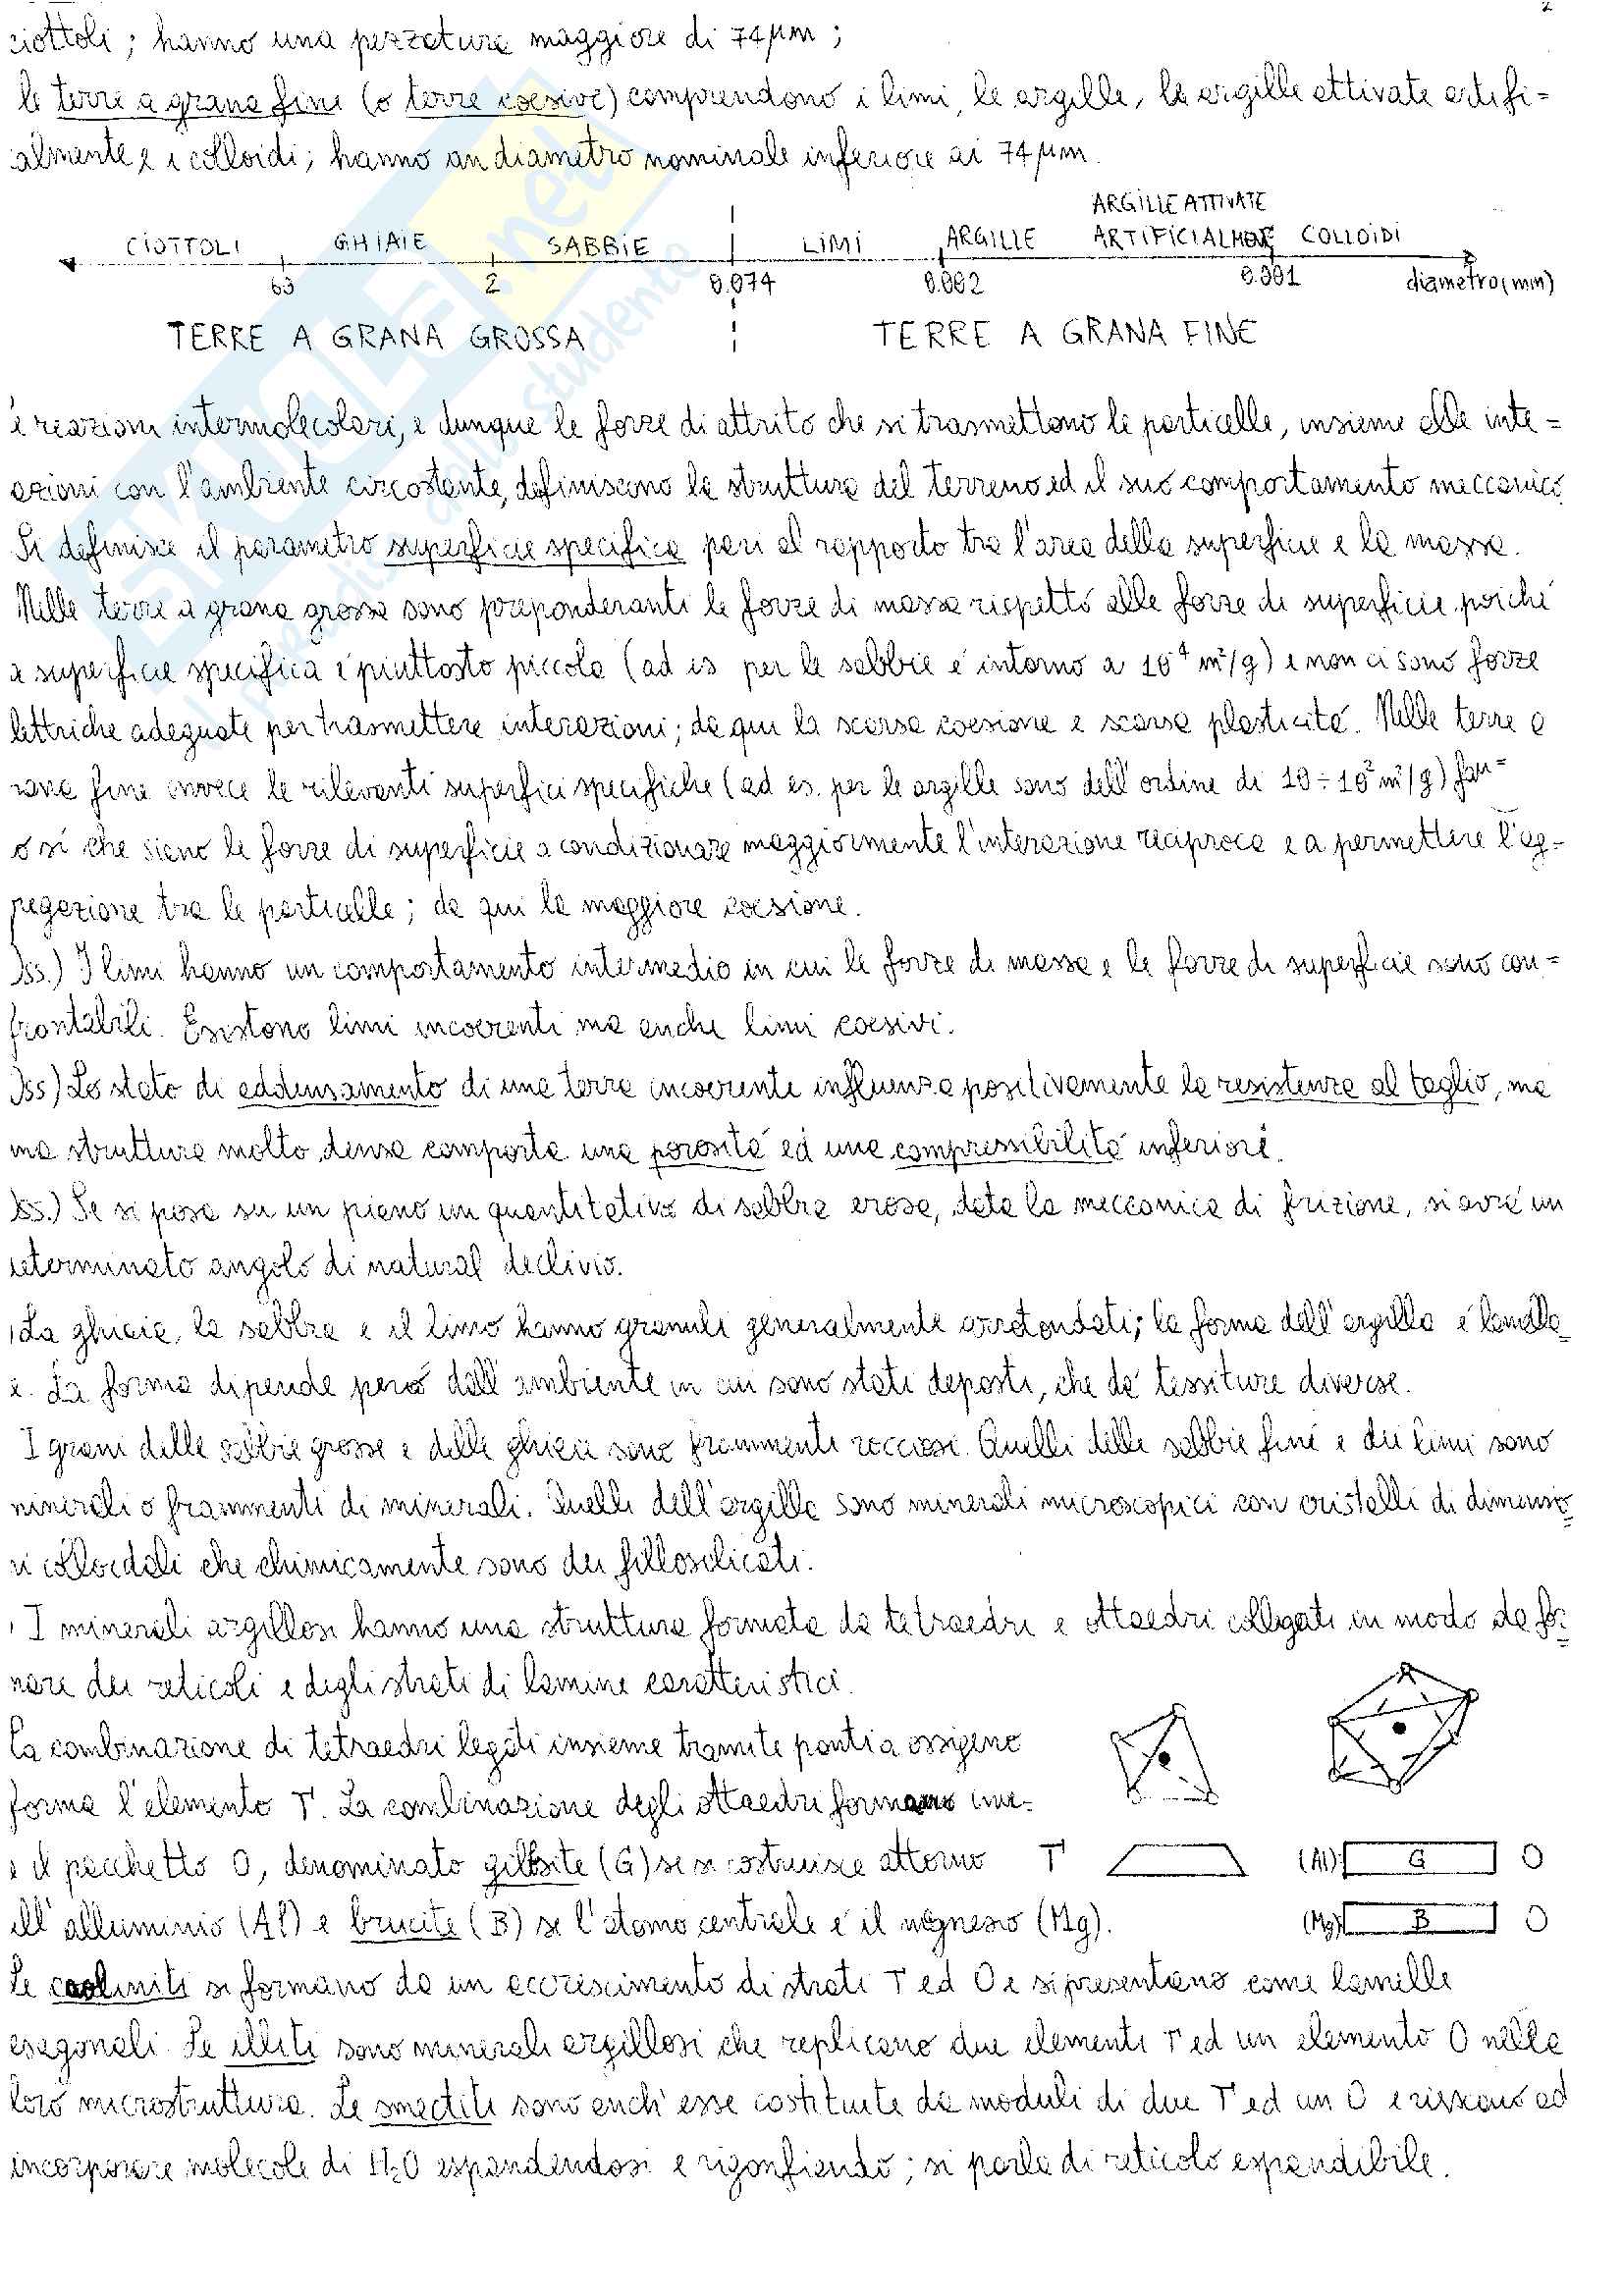 2
ciottoli; hanno una pezzatura maggiore di 74 µm;
le terre a grana fine (o terre coesive) comprendono i limi, le argille, le argille attivate artifi=
cialmente e i colloidi; hanno un diametro nominale inferiore ai 74 µm.
ARGILLE ATTIVATE
CIOTTOLI GHIAIE SABBIE LIMI ARGILLE ARTIFICIALMENTE COLLOIDI
63 2 0.074 0.002 0.001 diametro (mm)
TERRE A GRANA GROSSA TERRE A GRANA FINE
e reazioni intermolecolari, e dunque le forze di attrito che si trasmettono le particelle, insieme alle inte=
azioni con l'ambiente circostante, definiscono la struttura del terreno ed il suo comportamento meccanico.
Si definisce il parametro superficie specifica pari al rapporto tra l'area della superficie e la massa.
Nelle terre a grana grossa sono preponderanti le forze di massa rispetto alle forze di superficie poiché
a superficie specifica è piuttosto piccola (ad es per le sabbie è intorno a 10⁻⁴ m²/g) e non ci sono forze
lettriche adeguate per trasmettere interazioni; da qui la scarsa coesione e scarsa plasticità. Nelle terre a
rana fine invece le rilevanti superfici specifiche (ad es. per le argille sono dell'ordine di 10÷10² m²/g) fan=
o sì che siano le forze di superficie a condizionare maggiormente l'interazione reciproca e a permettere l'ag-
regazione tra le particelle; da qui la maggiore coesione.
Oss.) I limi hanno un comportamento intermedio in cui le forze di massa e le forze di superficie sono con=
frontabili. Esistono limi incoerenti ma anche limi coesivi.
Oss) Lo stato di addensamento di una terra incoerente influenza positivamente la resistenza al taglio, ma
una struttura molto densa comporta una porosità ed una compressibilità inferiore.
Oss.) Se si posa su un piano un quantitativo di sabbia erosa, data la meccanica di frizione, si avrà un
determinato angolo di natural declivio.
La ghiaia, la sabbia e il limo hanno granuli generalmente arrotondati; la forma dell'argilla è lamella=
e. La forma dipende però dall'ambiente in cui sono stati deposti, che dà tessiture diverse.
I grani delle sabbie grosse e delle ghiaie sono frammenti rocciosi. Quelli delle sabbie fini e dei limi sono
minerali o frammenti di minerali. Quelli dell'argilla sono minerali microscopici con cristalli di dimensio=
ni colloidali che chimicamente sono dei fillosilicati.
I minerali argillosi hanno una struttura formata da tetraedri e ottaedri collegati in modo da for=
mare dei reticoli e degli strati di lamine caratteristici.
La combinazione di tetraedri legati insieme tramite ponti a ossigeno
forma l'elemento T. La combinazione degli ottaedri formano inve=
e il pacchetto O, denominato gibbsite (G) se si costruisce attorno
T (Al) G O
all'alluminio (Al) e brucite (B) se l'atomo centrale è il magnesio (Mg).
(Mg) B O
Le caoliniti si formano da un accrescimento di strati T ed O e si presentano come lamelle
esagonali. Le illiti sono minerali argillosi che replicano due elementi T ed un elemento O nella
loro microstruttura. Le smectiti sono anch'esse costituite da moduli di due T ed un O e riescono ad
incorporare molecole di H₂O espandendosi e rigonfiando; si parla di reticolo espandibile.